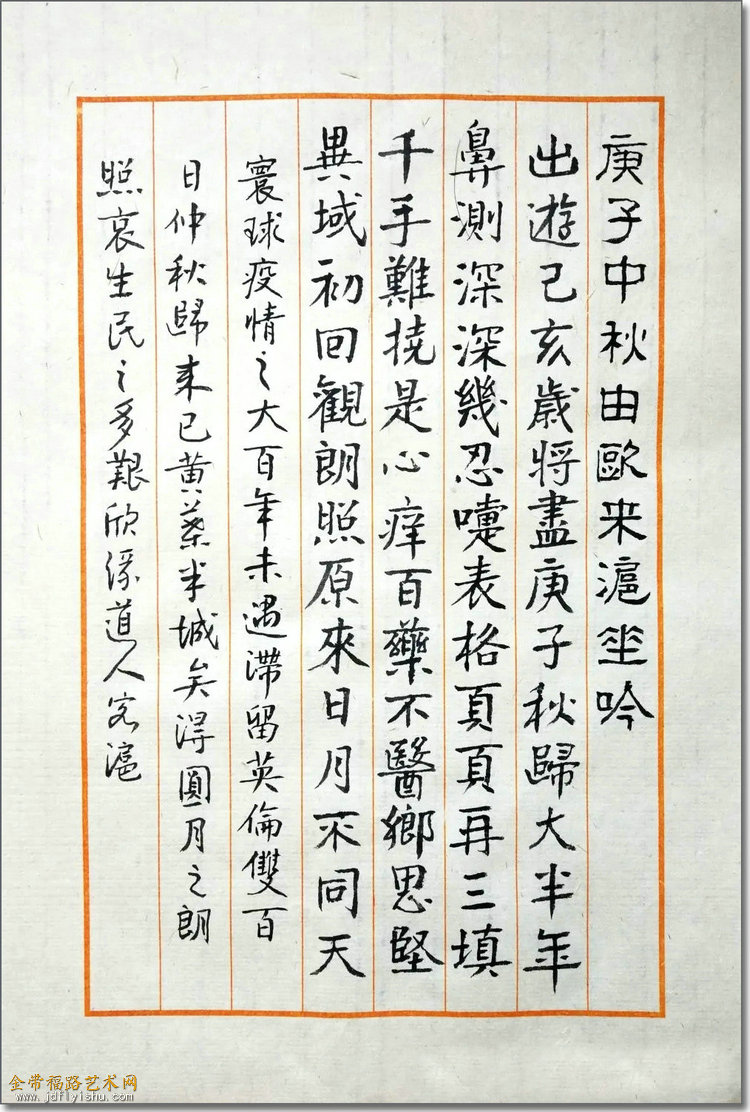 庚子中秋由歐来滬坐吟
出遊己亥歲將盡庚子秋歸大半年
鼻測深深幾忍嚏表格頁頁再三填
千手難撓是心痒百藥不醫鄉思堅
異域初回觀朗照原來日月不同天
寰球疫情之大百年未遇滯留英倫雙百
日仲秋歸来已黄葉半城矣得圓月之朗
照哀生民之多艱欣缘道人客滬
金带福路艺术网
www.jdflyishu.com